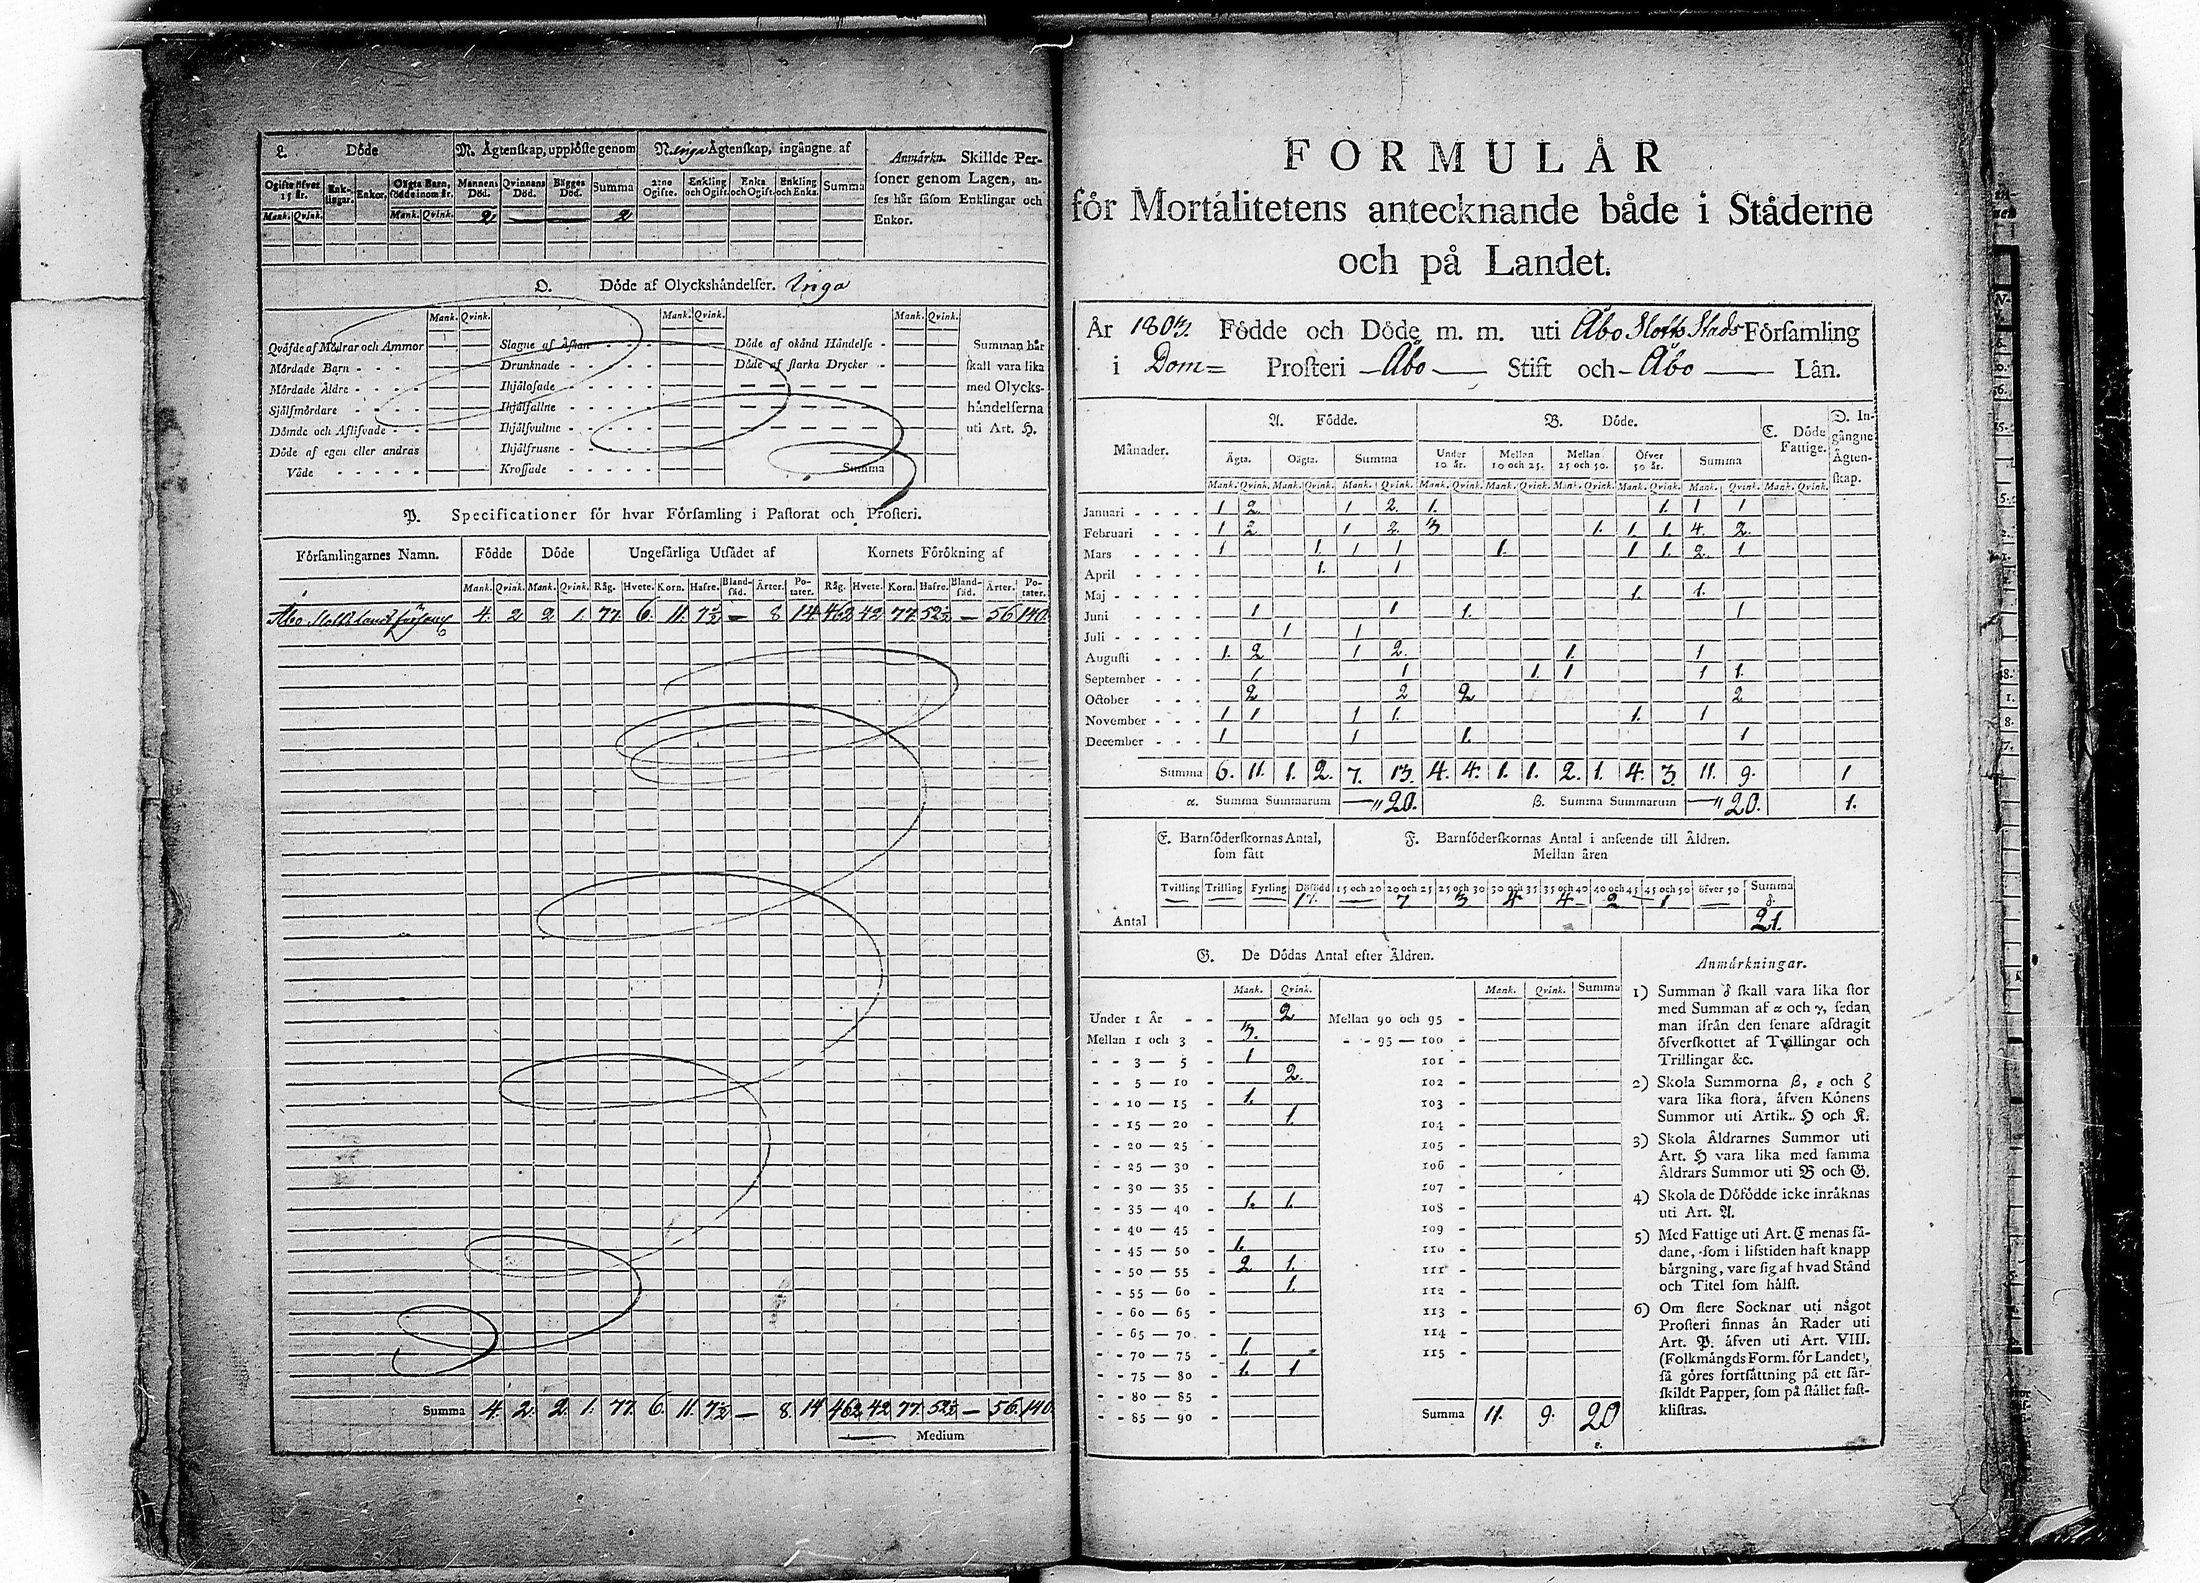 L. Döde
M. Ägtenskap, upplöste genom
N. Inga Ägtenskap, ingångne af
Anmärkn. Skillde Per-
soner genom Lagen, an-
ses här såsom Enklingar och
Enkor.
Ogifte öfver 15 år. Enk-lingar. Enkor. Oägta Barn, döde inom år. Mannens Död. Qvinnans Död. Bägges Död. Summa 2:ne Ogifte. Enkling och Ogift. Enka och Ogift. Enkling och Enka. Summa
Mank. Qvink. Mank. Qvink. 2. 2
O. Döde af Olyckshändelser. Inga
Mank. Qvink. Mank. Qvink. Mank. Qvink.
Qväfde af Mödrar och Ammor Slagne af Åskan Döde af okänd Händelse - Summan här
Mördade Barn - - - Drunknade - - - - - Döde af starka Drycker - skall vara lika
Mördade Äldre - - - Ihjälosade - - - - - med Olycks-
Sjölfmördare - - - - Ihjälfallne - - - - - händelserna
Dömde och Aflifvade - - Ihjälsvultne - - - - - uti Art. H.
Döde af egen eller andras Ihjälfrusne - - - - -
Våde - - - - - Krossade - - - - - Summa
P. Specificationer för hvar Församling i Pastorat och Prosteri.
Församlingarnes Namn. Födde Döde Ungefärliga Utsädet af Kornets Förökning af
Mank. Qvink. Mank. Qvink. Råg. Hvete. Korn. Hafre. Bland-säd. Ärter. Po-tater. Råg. Hvete. Korn. Hafre. Bland-säd. Ärter. Po-tater.
Åbo Slotts landt församl 4. 2 2 1. 77. 6. 11. 7½ — 8 14 462 42 77. 52½ — 56 140.
Summa 4. 2. 2. 1. 77. 6. 11. 7½ — 8. 14 462 42 77. 52½ — 56. 140
Medium
FORMULÄR
för Mortälitetens antecknande både i Städerne
och på Landet.
År 1803. Födde och Döde m. m. uti Åbo Slotts Stads Församling
i Dom= Prosteri Åbo Stift och Åbo Län.
Månader. A. Födde. B. Döde. C. Döde Fattige. D. In-gångne Ägten-skap.
Ägta. Oägta. Summa Under 10 år. Mellan 10 och 25. Mellan 25 och 50. Öfver 50 år. Summa
Mank. Qvink. Mank. Qvink. Mank. Qvink. Mank. Qvink. Mank. Qvink. Mank. Qvink. Mank. Qvink. Mank. Qvink. Mank. Qvink.
Januari - - - - 1 2 1 2. 1. 1. 1 1
Februari - - - 1 2 1 2 3 1. 1. 1. 4. 2.
Mars - - - 1 1. 1 1 1. 1 1. 2. 1
April - - - 1. 1
Maj - - - - 1. 1.
Juni - - - 1 1 1. 1
Juli - - - - 1 1
Augusti - - - 1. 2 1 2. 1. 1
September - - - 1 1 1. 1 1 1.
October - - - 2 2 2 2
November - - - 1 1 1 1. 1. 1
December - - - 1 1 1. 1
Summa 6. 11. 1. 2. 7. 13. 4. 4. 1. 1. 2. 1. 4. 3. 11. 9. 1
α. Summa Summarum 20. β. Summa Summarum 20. 1.
E. Barnföderskornas Antal,
som fått
F. Barnföderskornas Antal i anseende till Åldren.
Mellan åren
Tvilling Trilling Fyrling Dödfödd 15 och 20 20 och 25 25 och 30 30 och 35 35 och 40 40 och 45 45 och 50 öfver 50 Summa
— — — 1 — 7 3 4 4 2 1 — δ.
Antal 21.
G. De Dödas Antal efter Åldren.
Mank. Qvink. Mank. Qvink. Summa
Under 1 År - - 2 Mellan 90 och 95 -
Mellan 1 och 3 - 3. - - 95 — 100 -
- - 3 — 5 - 1 101 -
- - 5 — 10 - 2. 102 -
- - 10 — 15 - 1. 103 -
- - 15 — 20 - 1. 104 -
- - 20 — 25 - 105 -
- - 25 — 30 - 106 -
- - 30 — 35 - 107 -
- - 35 — 40 - 1. 1. 108 -
- - 40 — 45 - 109 -
- - 45 — 50 - 1. 110 -
- - 50 — 55 - 2 1. 111 -
- - 55 — 60 - 1. 112 -
- - 60 — 65 - 113 -
- - 65 — 70 - 114 -
- - 70 — 75 - 1. 115 -
- - 75 — 80 - 1. 1
- - 80 — 85 -
- - 85 — 90 - Summa 11. 9. 20
ε.
Anmärkningar.
1) Summan δ skall vara lika stor
med Summan af α och γ, sedan
man ifrån den senare afdragit
öfverskottet af Tvillingar och
Trillingar &c.
2) Skola Summorna β, ε och ζ
vara lika stora, äfven Könens
Summor uti Artik. H och K.
3) Skola Åldrarnes Summor uti
Art. H vara lika med samma
Åldrars Summor uti B och G.
4) Skola de Dödfödde icke inräknas
uti Art. A.
5) Med Fattige uti Art. C menas så-
dane, som i lifstiden haft knapp
bärgning, vare sig af hvad Stånd
och Titel som hälst.
6) Om flere Socknar uti något
Prosteri finnas än Rader uti
Art. P. äfven uti Art. VIII.
(Folkmängds Form. för Landet),
så göres fortsättning på ett sär-
skildt Papper, som på stället fast-
klistras.